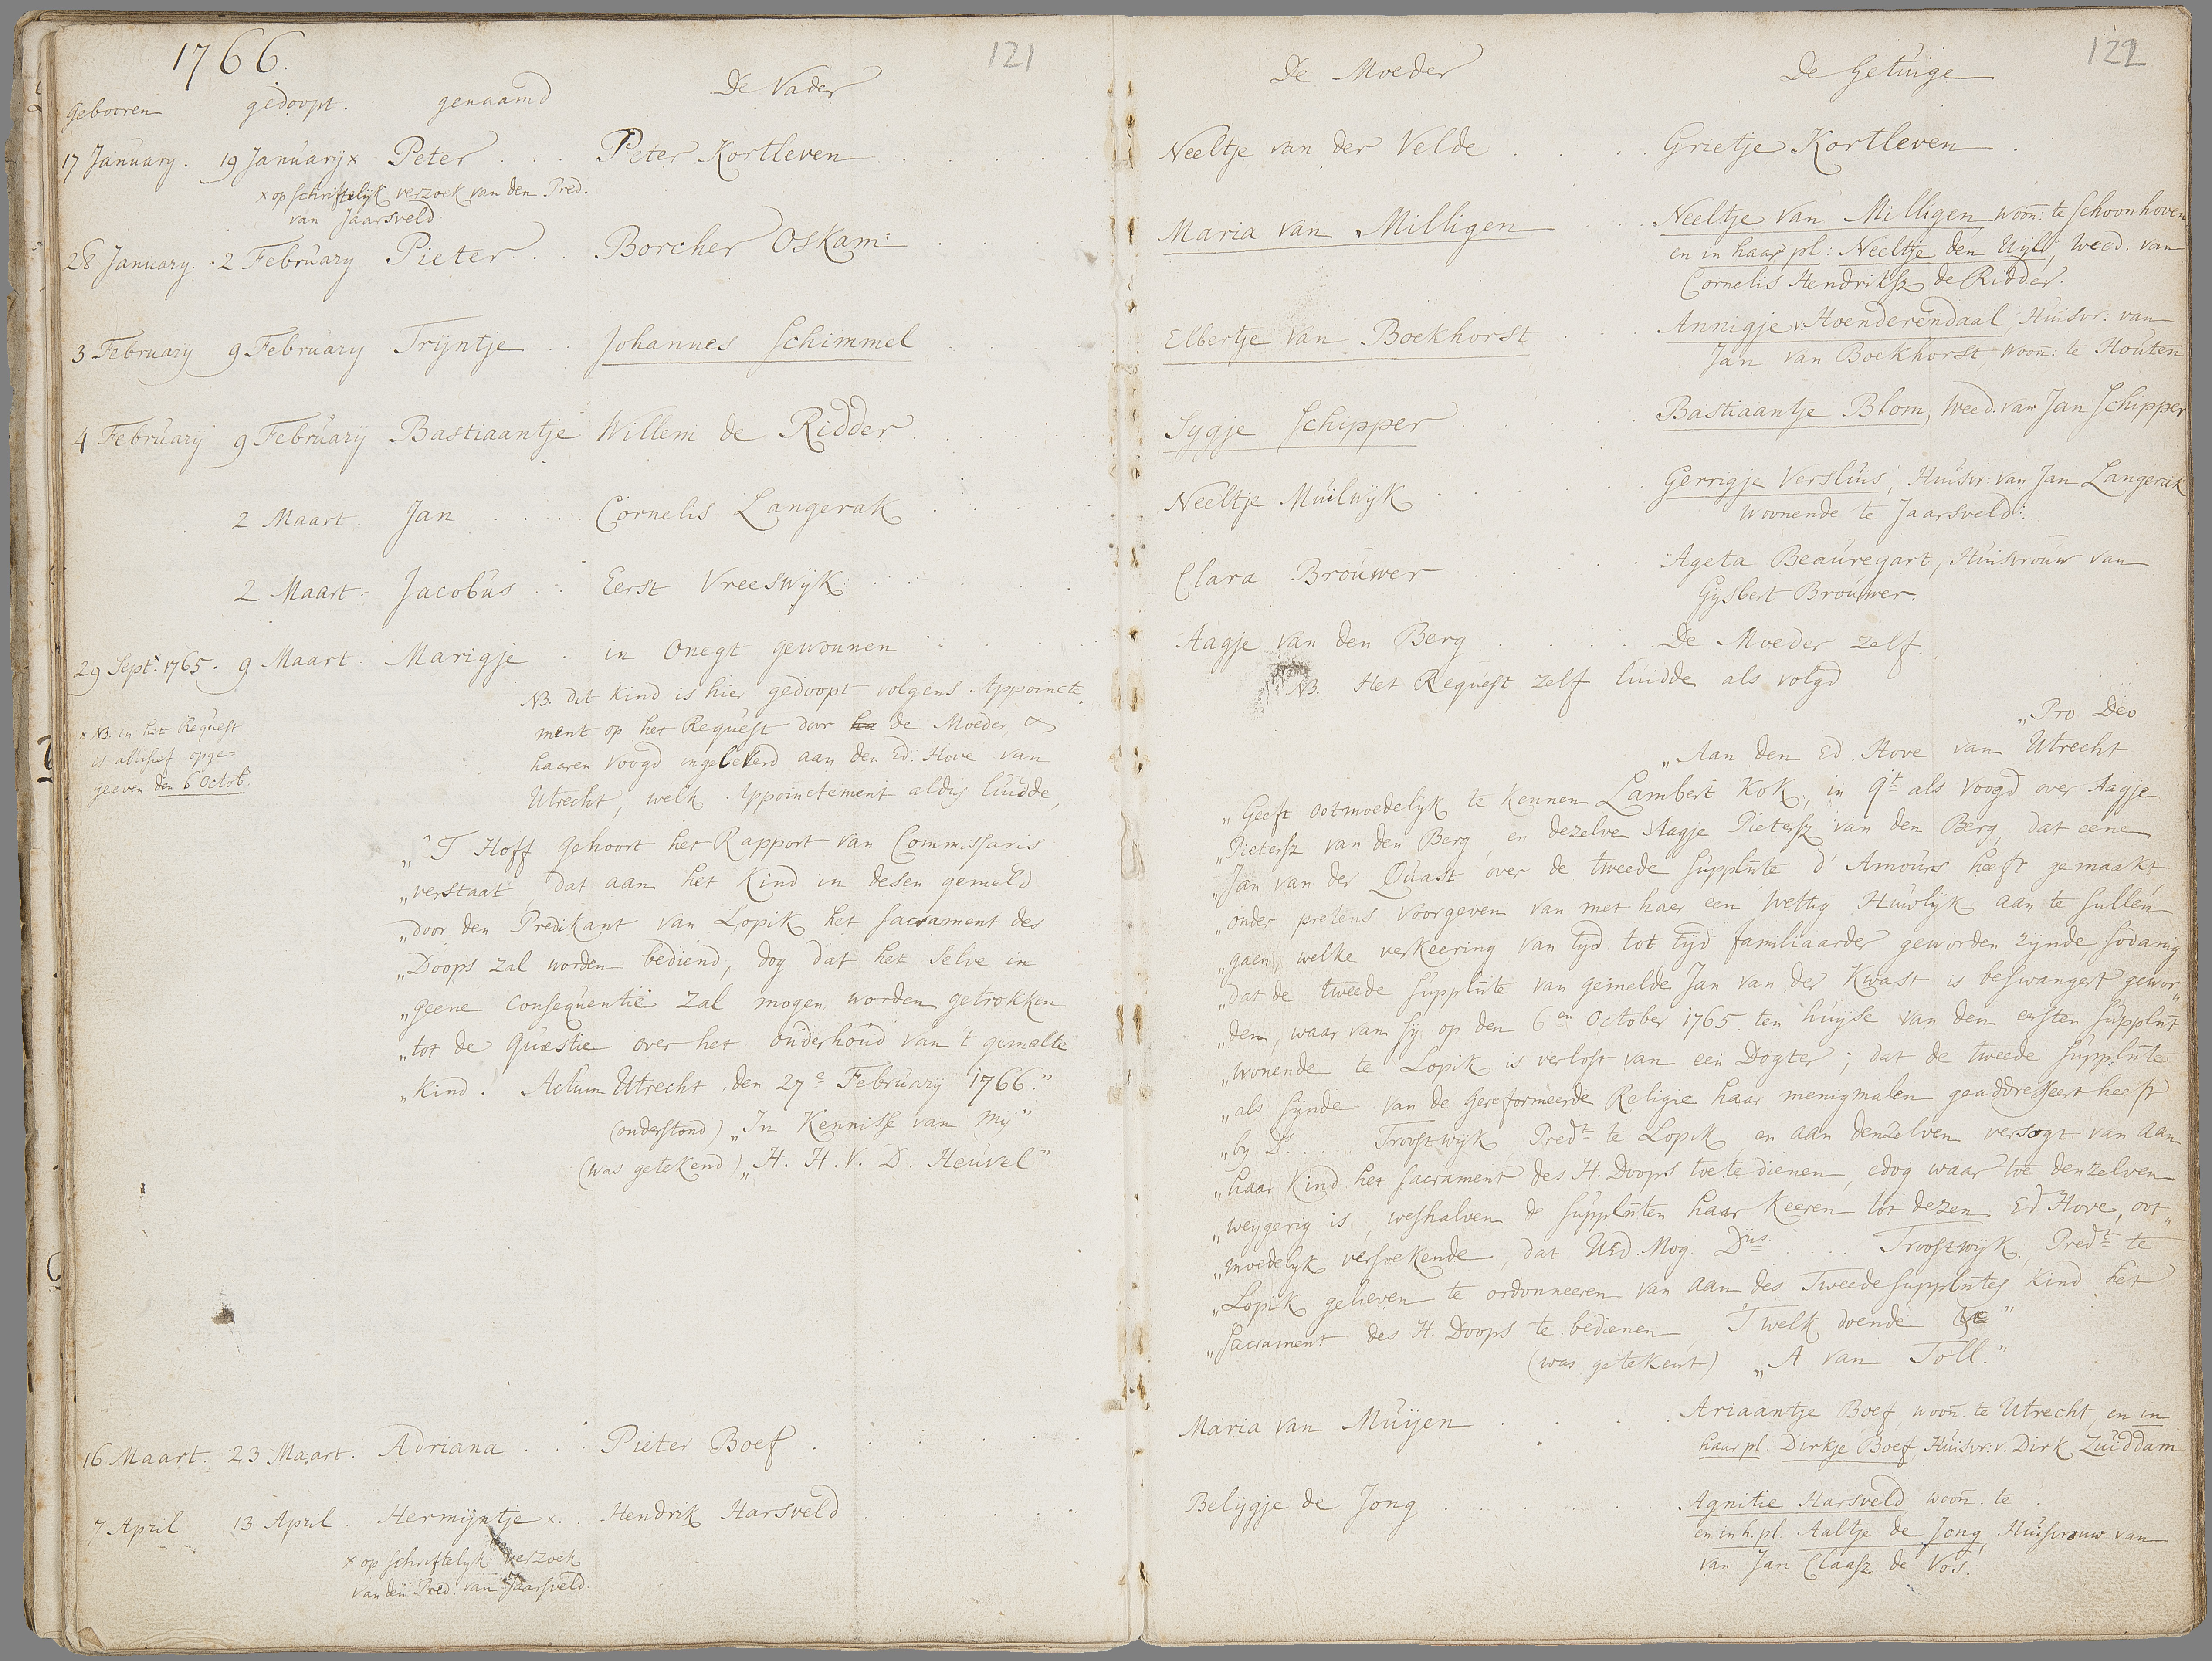 1766.
121
Gebooren gedoopt. genaamd De Vader
17 January. 19 Januarij x Peter . . . Peter Kortleven
x op schriftelijk verzoek van den Pred.
van Jaarsveld
28 January. 2 February Pieter . . Borcher Oskam:
3 February 9 February Trijntje . . Johannes Schimmel
4 February 9 February Bastiaantje Willem de Ridder
2 Maart. Jan . . . . Cornelis Langerak
2 Maart. Jacobus . . Eerst Vreeswijk
29 Sept. 1765. 9 Maart. Marigje . in Onegt gewonnen
NB. dit kind is hier gedoopt volgens Appoincte
ment op het Request door ha de Moeder &
haaren Voogd ingeleverd aan den Ed. Hove van
Utrecht, welk Appoinctement aldus luidde,
x NB. in het Request
is abusief opge=
geeven den 6 Octob.
„'T Hoff gehoort het Rapport van Commissaris
„verstaat, dat aan het Kind in desen gemeld
„door den Predikant van Lopik het sacrament des
„Doops zal worden bediend, dog dat het selve in
„geene consequentie zal mogen worden getrokken
„tot de Quæstie over het onderhoud van 't gemelte
„kind. Actum Utrecht den 27e February 1766."
(onderstond) „In Kennisse van mij"
(was getekend) „H. H. V. D. Heuvel"
16 Maart. 23 Maart. Adriana . . . Pieter Boef
7 April 13 April . Hermijntje x. . Hendrik Harsveld
x op schriftelyk verzoek
van den Pred. van Jaarsveld.
122
De Moeder De Getuige
Neeltje van der Velde . . . . Grietje Kortleven
Maria van Milligen . . Neeltje van Milligen woon: te Schoonhoven
en in haar pl: Neeltje den Uijl, Weed. van
Cornelis Hendriksz de Ridder.
Elbertje van Boekhorst . . Annigje v. Hoenderendaal, Huisvr: van
Jan van Boekhorst woon: te Houten
Sygje Schipper . . . . Bastiaantje Blom, Weed. van Jan Schipper
Neeltje Muilwijk . . . . Gerrigje Versluis, Huisvr: van Jan Langerak
woonende te Jaarsveld.
Clara Brouwer . . . . Ageta Beauregart, Huisvrouw van
Gijsbert Brouwer.
Aagje van den Berg . . . . De Moeder zelf.
NB. Het Request zelf luidde als volgd
„Pro Deo
„Aan den Ed. Hove van Utrecht
„Geeft ootmoedelyk te kennen Lambert Kok, in qt. als voogd over Aagje
„Pietersz van den Berg, en dezelve Aagje Pietersz van den Berg, dat eene
„Jan van der Quast over de tweede supplnte d'Amours heeft gemaakt
„onder pretens voorgeven van met haer een Wettig Huwlijk aan te sullen
„gaen, welke verkeering van tijd tot tijd familiaarder geworden zijnde, sodanig
„dat de tweede supplnte van gemelde Jan van der Kwast is beswangert gewor„
„den, waar van sy op den 6en October 1765. ten huyse van den eersten supplnt
„wonende te Lopik is verlost van een Dogter; dat de tweede supplnte
„als synde van de Gereformeerde Religie haar menigmalen geaddresseert heeft
„by Ds. . . . Troostwijk Predt. te Lopik en aan denzelven versogt van aan
„haar Kind het sacrament des H. Doops toe te dienen, edog waar toe denzelven
„weygerig is, weshalven de supplnten haar keeren tot dezen Ed Hove, oot„
„moedelyk versoekende, dat UEd. Mog. Dns . . . Troostwijk, Predt. te
„Lopik gelieven te ordonneeren van aan des Tweede supplntes Kind het
„Sacrament des H. Doops te bedienen 'T welk doende &c"
(was getekent) „A van Toll."
Maria van Muijen . . . . Ariaantje Boef woon te Utrecht, en in
haar pl. Dirkje Boef, Huisvr: v. Dirk Zuiddam
Belijgje de Jong . . . . Agnitie Harsveld woon. te .
en in h. pl. Aaltje de Jong, Huisvrouw van
van Jan Claasz de Vos.